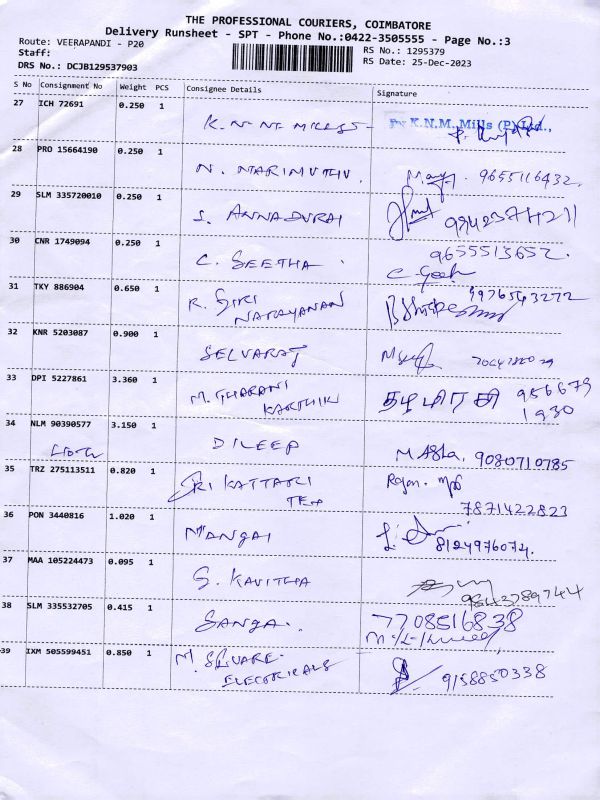 THE PROFESSIONAL COURIERS, COIMBATORE
Delivery Runsheet - SPT - Phone No.:0422-3505555 - Page No.:3
Route: VEERAPANDI - P20
RS No.: 1295379
Staff:
RS Date: 25-Dec-2023
DRS No.: DCJB129537903
S No Consignment No Weight PCS Consignee Details Signature
27 ICH 72691 0.250 1
For K.N.M. Mills (P) Ltd.,
28 PRO 15664190 0.250 1 N. MARIMUTHU 9655116432.
29 SLM 335720010 0.250 1 S. ANNADURAI 9842374211
30 CNR 1749094 0.250 1 C. SEETHA 9655513652.
31 TKY 886904 0.650 1 R. SIRI 9976543272
NARAYANAN
32 KNR 5203087 0.900 1 SELVARAJ
33 DPI 5227861 3.360 1 M. THARANI 956679
KARTHIK 1930
34 NLM 90390577 3.150 1 DILEEP 9080710785
35 TRZ 275113511 0.820 1 SRI KATTALI
TEX 7871422823
36 PON 3440816 1.020 1 MANGAI 8124976074.
37 MAA 105224473 0.095 1 S. KAVITHA 9843789744
38 SLM 335532705 0.415 1 SANGA. 7708516838
39 IXM 505599451 0.850 1 M. SQUARE 9158850338
ELECTRICALS